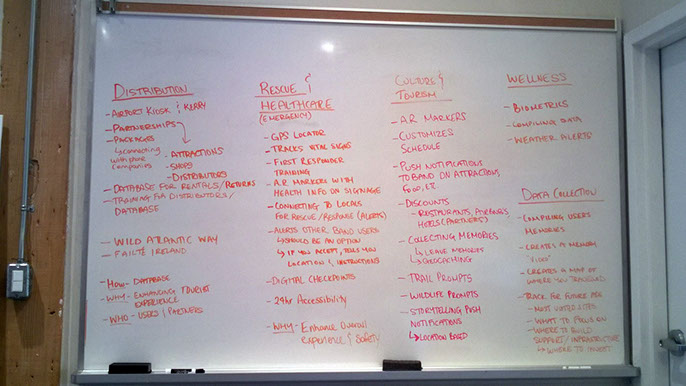 DISTRIBUTION
- AIRPORT KIOSK & KERRY
- PARTNERSHIPS
- PACKAGES
↳ CONNECTING
WITH PHONE
COMPANIES
- ATTRACTIONS
- SHOPS
- DISTRIBUTORS
- DATABASE FOR RENTALS/RETURNS
- TRAINING FOR DISTRIBUTORS/
DATABASE
- WILD ATLANTIC WAY
- FAILTE IRELAND
- HOW - DATABASE
- WHY - ENHANCING TOURIST
EXPERIENCE
- WHO - USERS / PARTNERS
RESCUE &
HEALTHCARE
(EMERGENCY)
- GPS LOCATOR
- TRACKS VITAL SIGNS
- FIRST RESPONDER
TRAINING
- A.R. MARKERS WITH
HEALTH INFO ON SIGNAGE
- CONNECTING TO LOCALS
FOR RESCUE/RESPONSE (ALERTS)
- ALERTS OTHER BAND USERS
↳ SHOULD BE AN OPTION
↳ IF YOU ACCEPT, TELLS YOU
LOCATION & INSTRUCTIONS
- DIGITAL CHECKPOINTS
- 24hr Accessibility
- WHY - Enhance Overall
experience & Safety
CULTURE &
TOURISM
- A.R. MARKERS
- CUSTOMIZES
SCHEDULE
- PUSH NOTIFICATIONS
TO BAND ON ATTRACTIONS,
FOOD,
- DISCOUNTS
- RESTAURANTS,
HOTELS (PARTNERS)
- COLLECTING MEMORIES
↳ LEAVE MEMORIES
↳ GEOCACHING
- TRAIL PROMPTS
- WILDLIFE PROMPTS
- STORYTELLING PUSH
NOTIFICATIONS
↳ LOCATION BASED
WELLNESS
- BIOMETRICS
- COMPILING DATA
- WEATHER ALERTS
DATA COLLECTION
- COMPILING USERS
MEMORIES
- CREATES A MEMORY
"VIDEO"
- CREATES A MAP OF
WHERE YOU TRAVELED
- TRACK FOR FUTURE USE
- MOST VISITED SITES
- WHAT TO FOCUS ON
- WHERE TO BUILD
SUPPORT/INFRASTRUCTURE
↳ WHERE TO INVEST